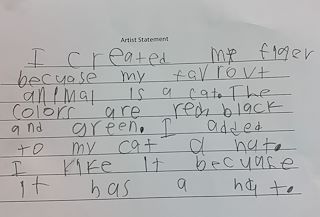 Artist Statement
I created my figer
becuase my favrovt
animal is a cat. The
colors are red, black
and green. I added
to my cat a hat.
I like it becuase
it has a hat.